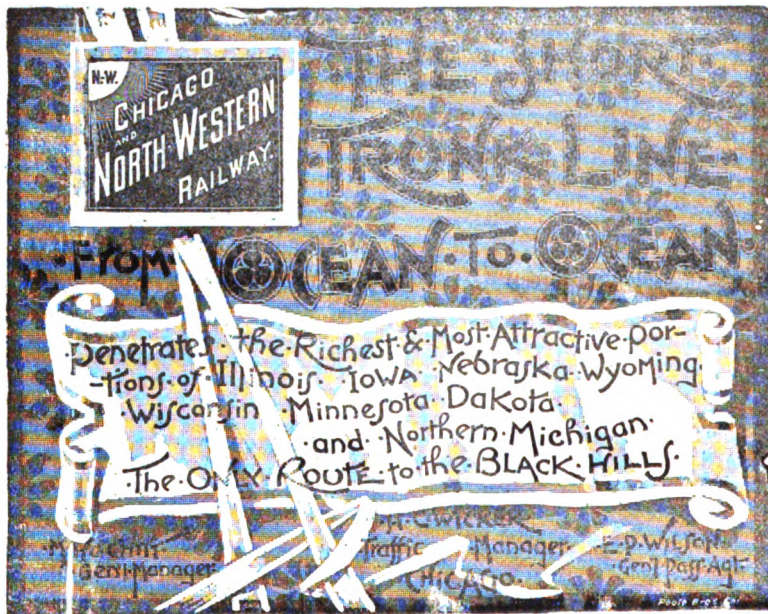 N-W.
CHICAGO
AND
NORTH-WESTERN
RAILWAY.
THE SHORT
TRUNK LINE
·From·OCEAN·To·OCEAN·
·Penetrates·the·Richest·&·Most·Attractive·por-
-tions·of·Illinois·Iowa·Nebraska·Wyoming·
·Wisconsin·Minnesota·Dakota
·and·Northern·Michigan·
·The·ONLY·ROUTE·to·the·BLACK·HILLS·
WICKER
Traffic Manager· E·P·Wilson
Gen'l·Manager· ·Gen'l·Pass·Agt·
CHICAGO·